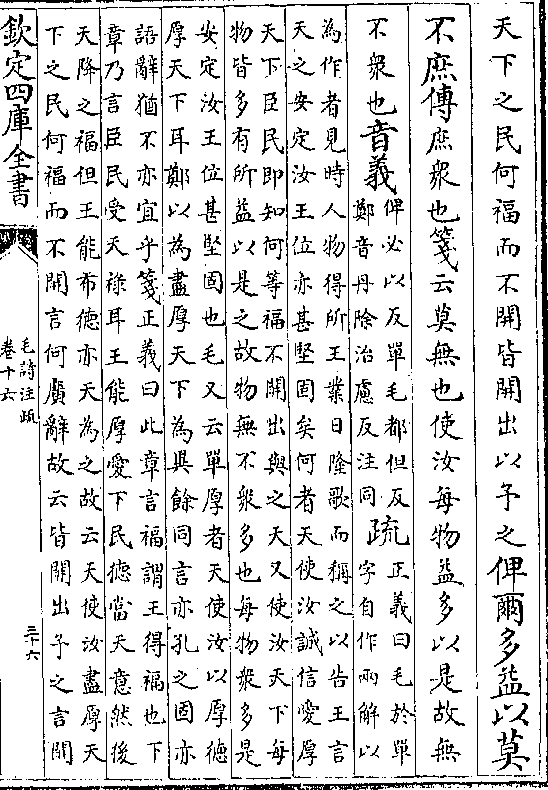 天下之民何福而不開皆開出以予之俾爾多益以莫
不庶傳庶衆也箋云莫無也使汝每物益多以是故無
不衆也音義俾必以反單毛都但反
鄭音丹除治慮反注同疏正義曰毛於單
字自作兩解以
為作者見時人物得所王業日隆歌而稱之以告王言
天之安定汝王位亦甚堅固矣何者天使汝誠信愛厚
天下臣民即知何等福不開出與之天又使汝天下每
物皆多有所益以是之故物無不衆多也每物衆多是
安定汝王位甚堅固也毛又云單厚者天使汝以厚德
厚天下耳鄭以為盡厚天下為異餘同言亦孔之固亦
語辭猶不亦宜乎箋正義曰此章言福謂王得福也下
章乃言臣民受天祿耳王能厚愛下民德當天意然後
天降之福但王能布德亦天為之故云天使汝盡厚天
下之民何福而不開言何廣辭故云皆開出予之言開
欽定四庫全書
毛詩注疏
卷十六
三十六